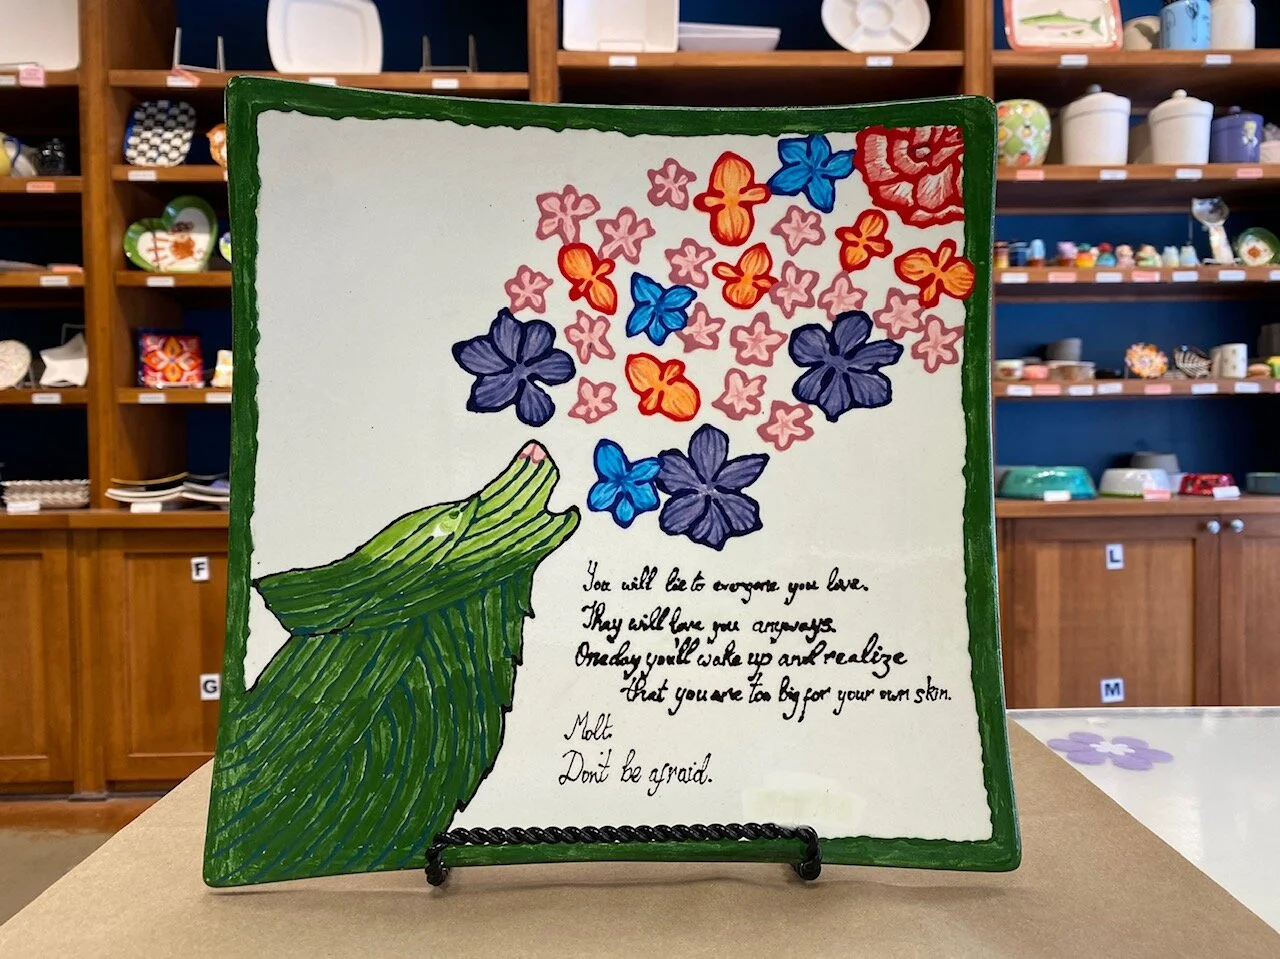 You will lie to everyone you love.
They will love you anyways.
One day you'll wake up and realize
that you are too big for your own skin.
Molt.
Don't be afraid.
F
G
L
M